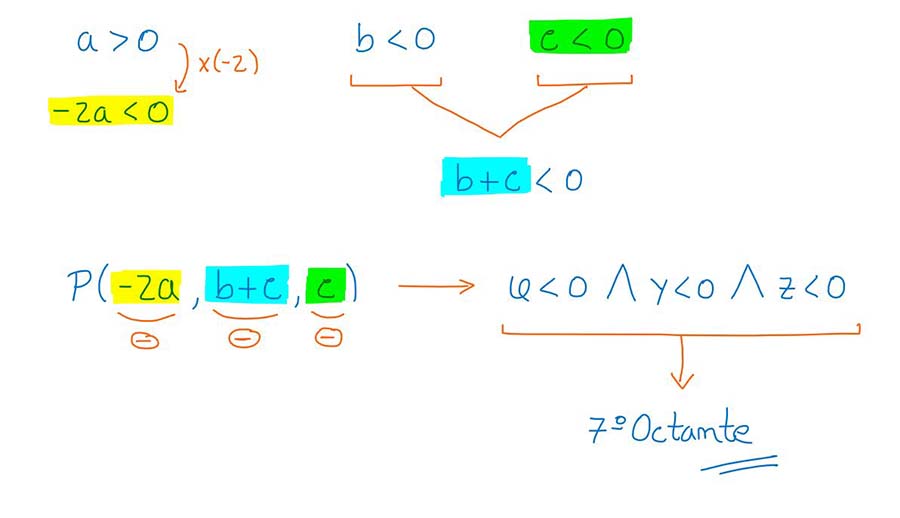 a > 0 x(-2) b < 0 c < 0
-2a < 0
b+c < 0
P(-2a, b+c, c) → x < 0 ∧ y < 0 ∧ z < 0
⊖ ⊖ ⊖
7º Octante